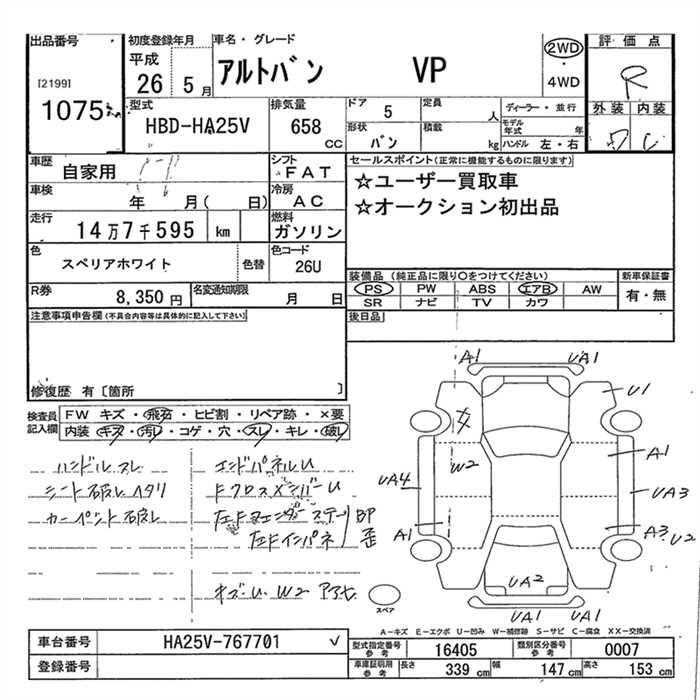 出品番号
[2199]
1075
初度登録年月
平成
26 5月
車名・グレード
アルトバン VP
2WD
・
4WD
評価点
R
外装 内装
型式
HBD-HA25V
排気量
658
CC
ドア 5
定員 人
形状 バン
積載 kg
ディーラー・並行
モデル年式 年
ハンドル 左・右
車歴 自家用
シフト FAT
車検 年 月( 日)
冷房 AC
走行 14万7千595 km
燃料 ガソリン
色 スペリアホワイト 色替
色コード 26U
R券 8,350円
名変通知期限 月 日
セールスポイント(正常に機能するものに限ります)
☆ユーザー買取車
☆オークション初出品
装備品(純正品に限り○をつけてください)
PS PW ABS エアB AW
SR ナビ TV カワ
新車保証書
有・無
後日品
注意事項申告欄(不具合内容等は具体的に記入して下さい)
修復歴 有〔箇所 〕
検査員記入欄
FW キズ・飛石・ヒビ割・リペア跡・×要
内装・キズ・汚レ・コゲ・穴・スレ・キレ・破レ
ハンドルスレ
シート破レヘタリ
カーペット破レ
エンドパネルU
FクロスメンバーU
左Fインパネ
A1
UA1
U1
W2
A1
UA4
UA3
A1
A3
U2
UA2
UA1
UA1
スペア
A-キズ E-エクボ U-凹み W-補修跡 S-サビ C-腐食 XX-交換済
車台番号 HA25V-767701 ✓
登録番号
型式指定番号 参考 16405
類別区分番号 参考 0007
車庫証明用 参考 長さ 339 cm 幅 147 cm 高さ 153 cm